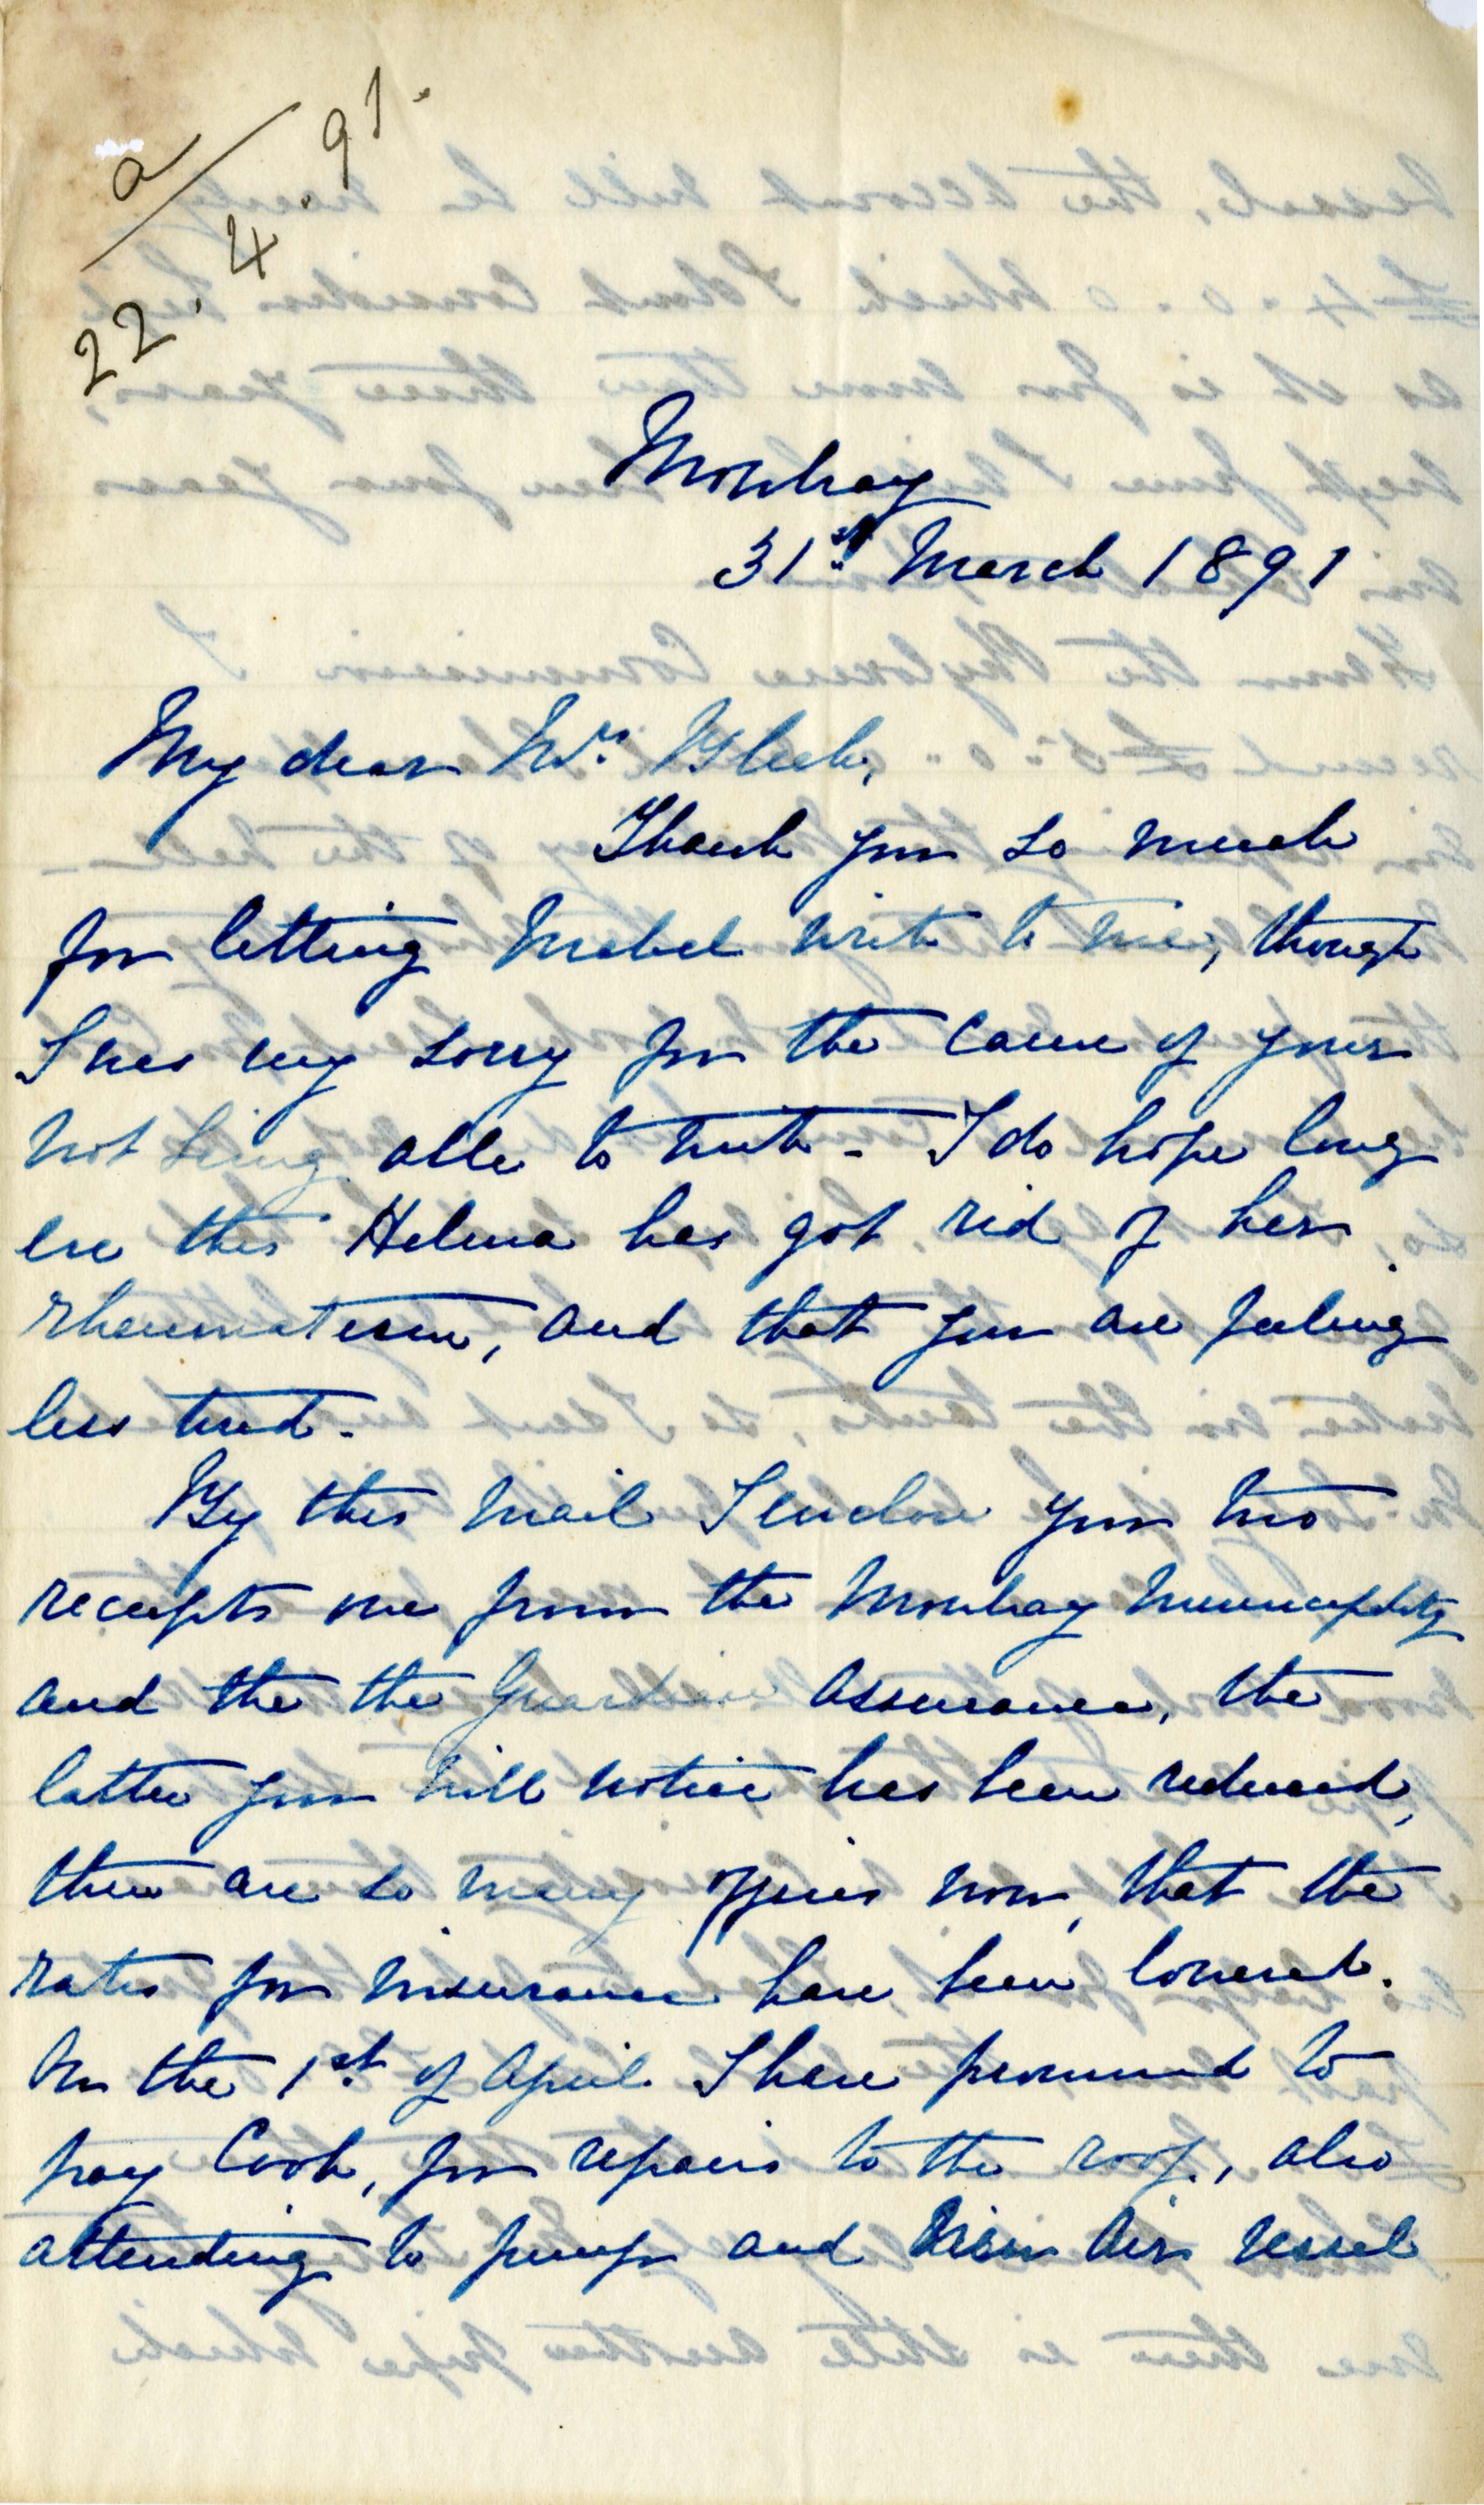 a
22.4.91.
Mowbray
31st March 1891
My dear Mrs Bleek,
Thank you so much
for letting Mabel write to me, though
I was very sorry for the cause of your
not being able to write - I do hope long
ere this Helma has got rid of her
rheumatism, and that you are feeling
less tired.
By this mail I enclose you two
receipts one from the Mowbray Municipality
and the the Guardian Assurance, the
latter you will notice has been reduced,
there are so many offices now, that the
rates for insurance have been lowered.
On the 1st of April I have promised to
pay Cook, for repairs to the roof, also
attending to pump and air vessel